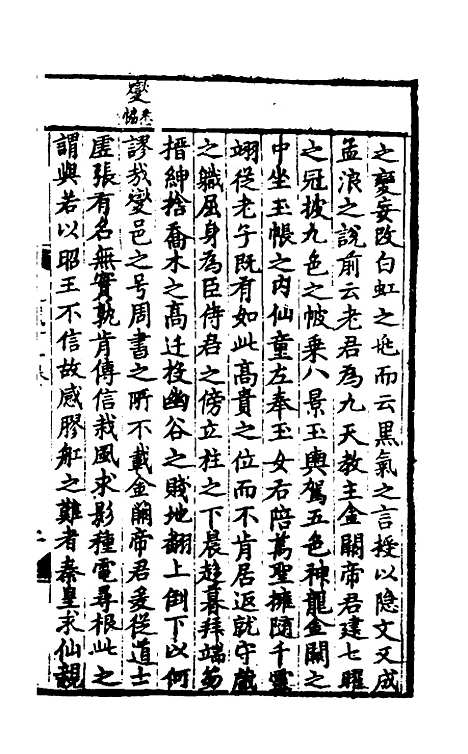 之變妄改白虹之地而云黑氣之言授以隐文又成
孟浪之說前云老君為九天教主金關帝君建七曜
之冠披九色之帔乗八景玉輿駕五色神龍金關之
中坐玉帳之内仙童左奉玉女右陪萬聖擁隨千靈
翊従老子既有如此高貴之位而不肯居返就守藏
之職屈身為臣侍君之傍立柱之下晨趍暮拜端笏
搢紳捨喬木之髙迁投幽谷之賤地翻上倒下以何
謬哉變邑之号周書之所不載金闕帝君爰從道士
虚張有名無實孰肯傳信栽風求影種電尋根此之
謂與若以昭王不信故感膠舡之難者秦皇求仙親